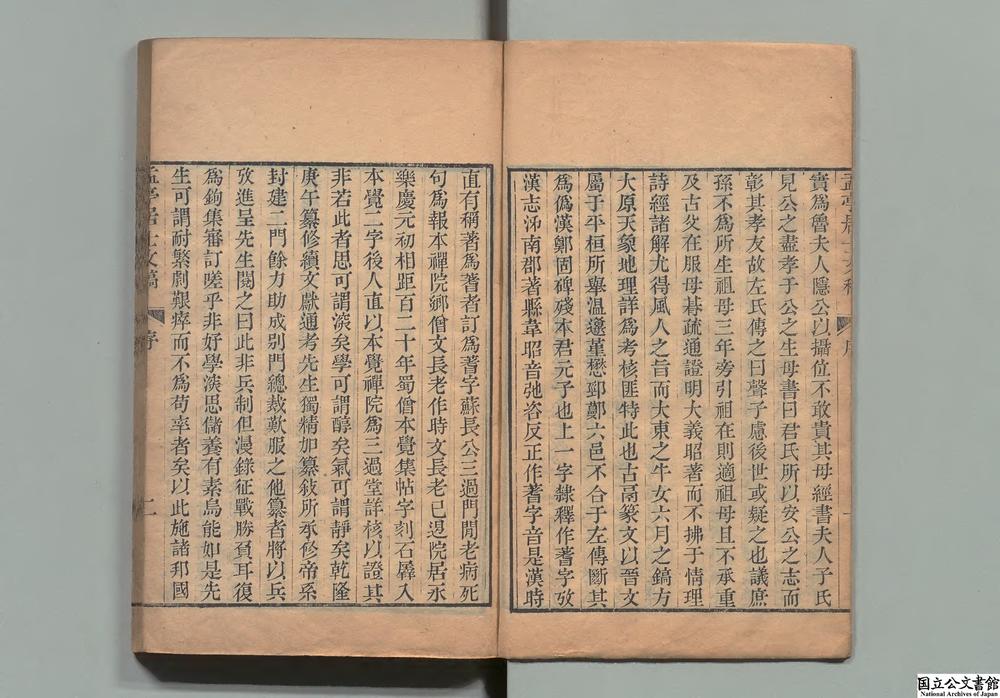 實為魯夫人隱公以攝位不敢貴其母經書夫人子氏
見公之盡孝于公之生母書曰君氏所以安公之志而
彰其孝友故左氏傳之曰聲子慮後世或疑之也議庶
孫不為所生祖母三年旁引祖在則適祖母且不承重
及古攵在服母朞疏通證明大義昭著而不拂于情理
詩經諸解尤得風人之旨而大東之牛女六月之鎬方
大原天象地理詳為考核匪特此也古鬲篆文以晉文
屬于平桓所舉溫邍堇懋郅鄭六邑不合于左傳斷其
為僞漢鄭固碑殘本君元子也上一字隸釋作蓍字攷
漢志沛南郡著縣韋昭音弛咨反正作蓍字音是漢時
直有稱著為蓍者訂為蓍字蘇長公三過門閒老病死
句為報本禪院鄉僧文長老作時文長老已退院居永
樂慶元初相距百二十年蜀僧本覺集帖字刻石羼入
本覺二字後人直以本覺禪院為三過堂詳核以證其
非若此者思可謂湥矣學可謂醇矣氣可謂靜矣乾隆
庚午纂修續文獻通考先生獨精加纂敍所承修帝系
封建二門餘力助成别門總裁歎服之他纂者將以兵
攷進呈先生閱之曰此非兵制但漫錄征戰勝負耳復
為鉤集審訂嗟乎非好學湥思儲養有素烏能如是先
生可謂耐繁劇艱瘁而不為苟率者矣以此施諸邦國
孟亭居士文稿
序
二
国立公文書館
National Archives of Japan